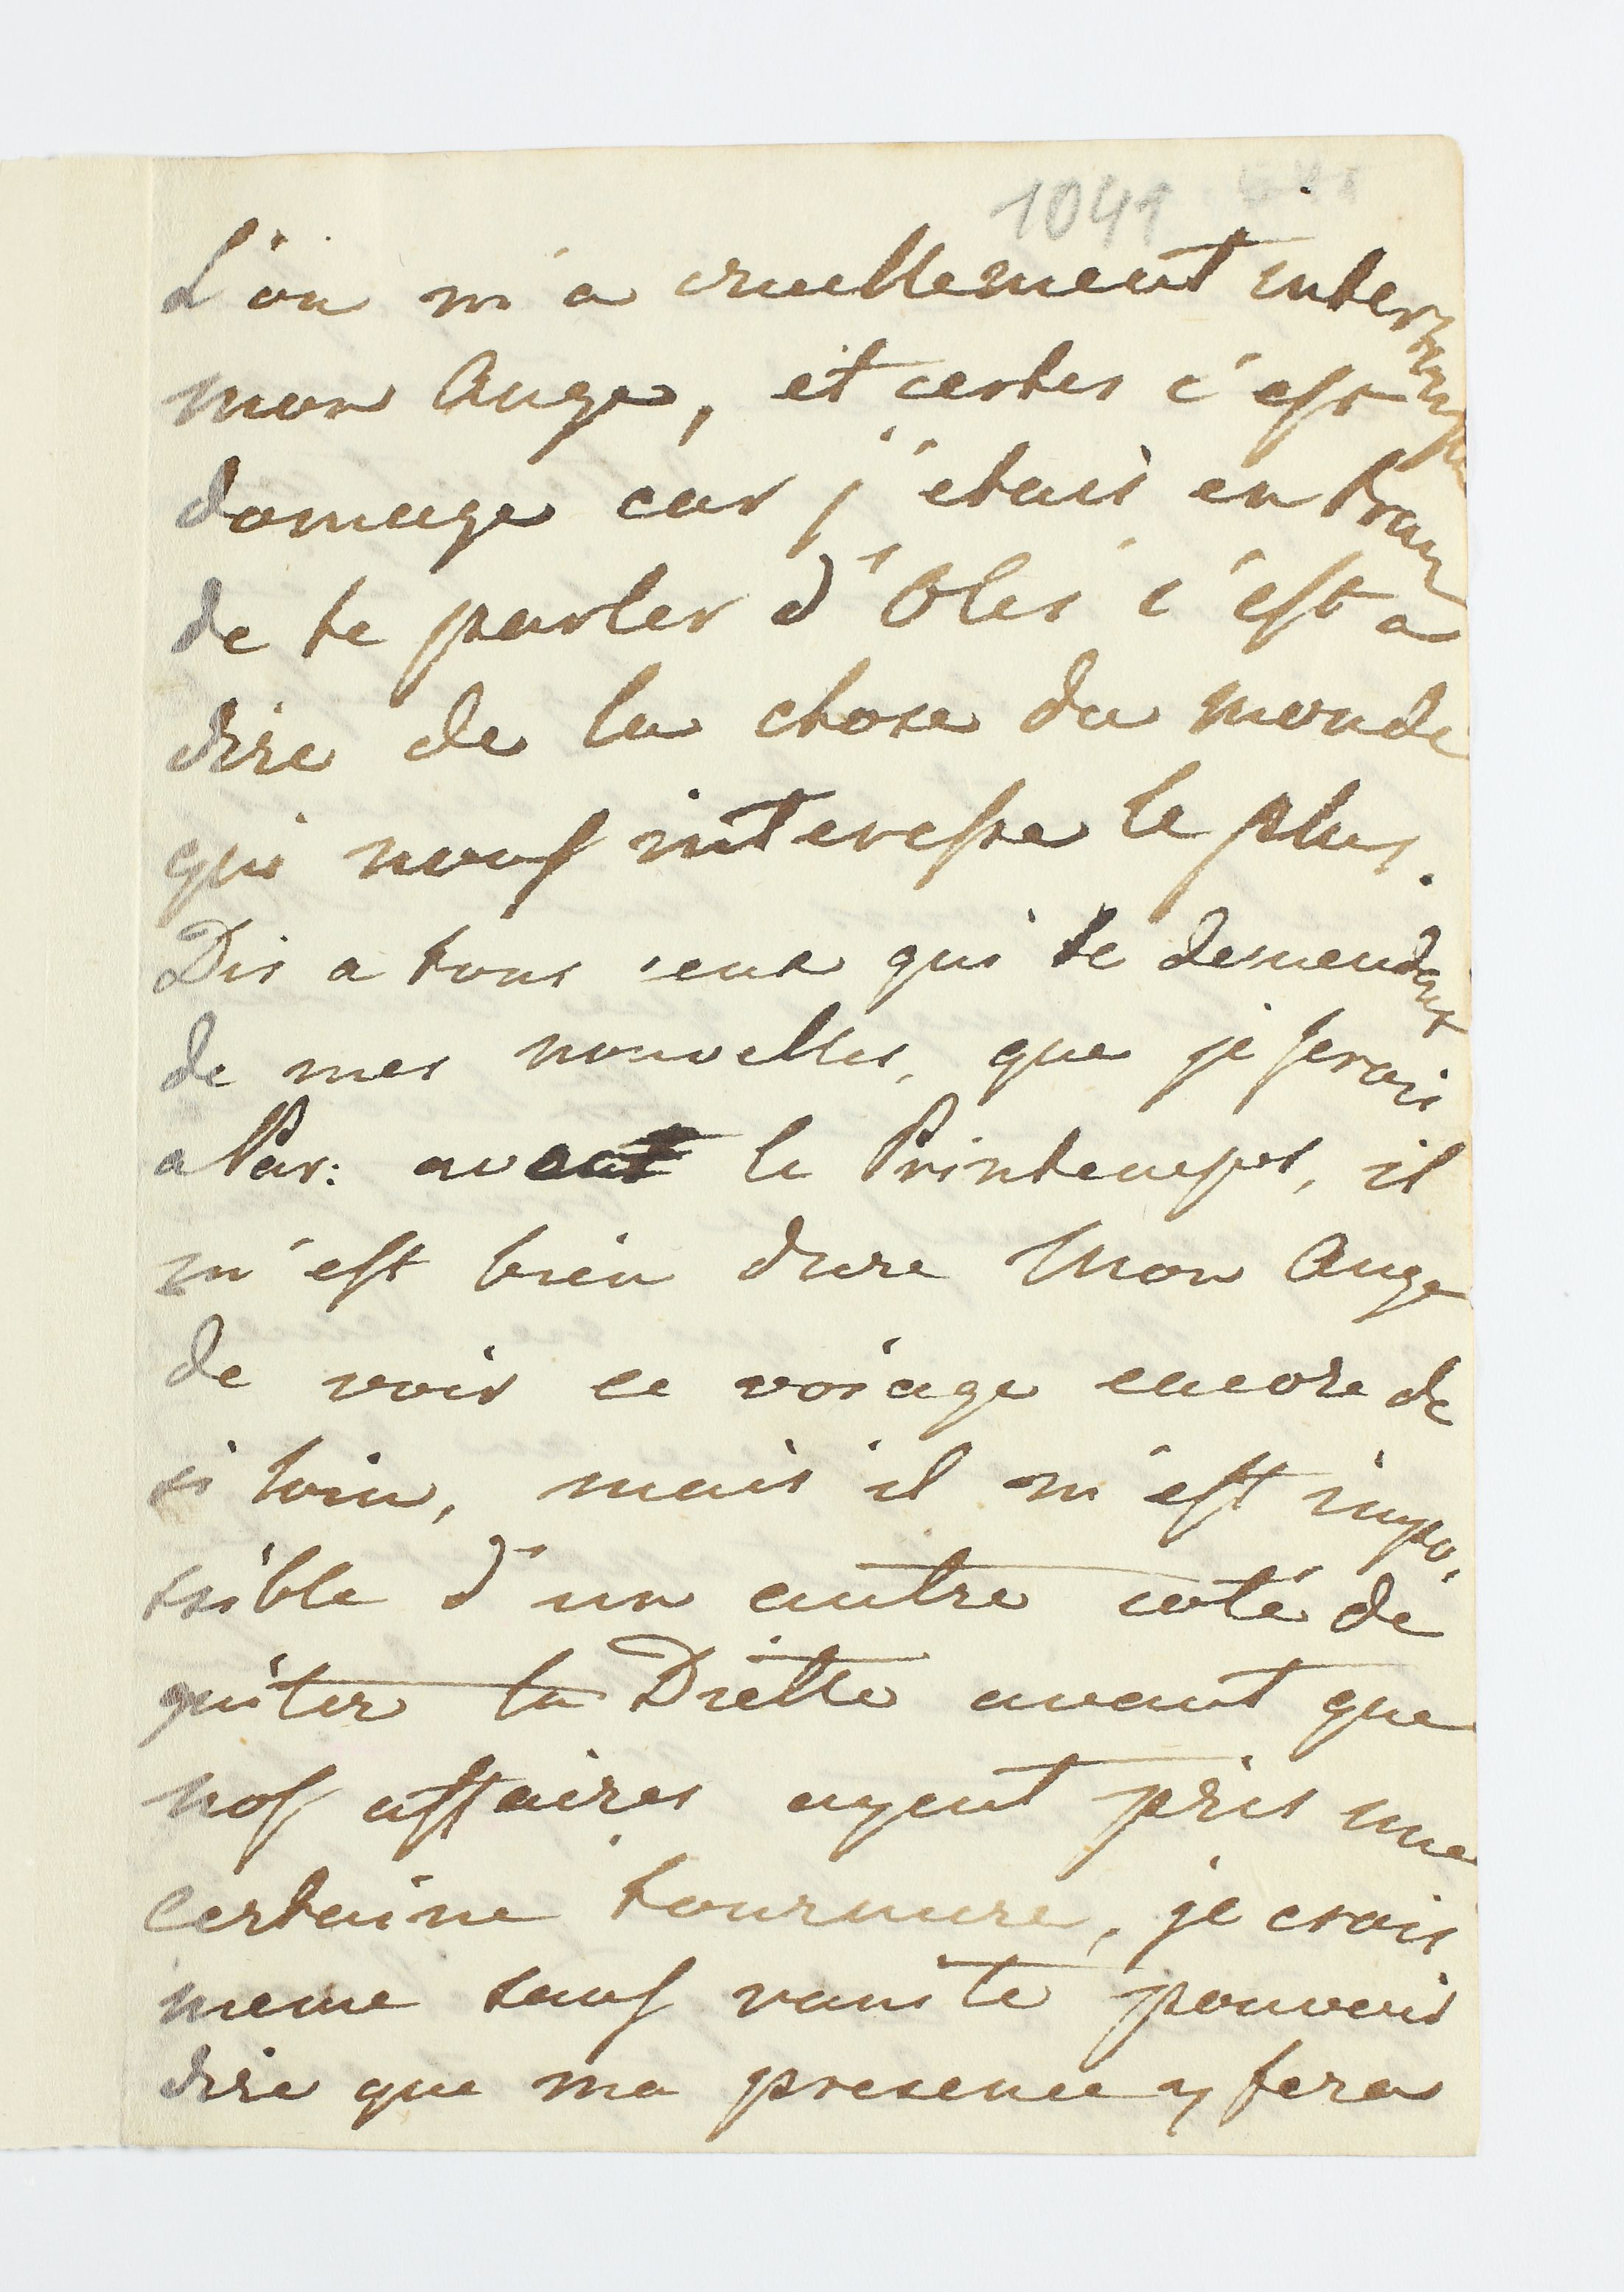 1041
L'on m'a cruellement interrompu
mon Ange, et certes c'est
domage car j'etais en train
de te parler d'Oles c'est a
dire de la chose du monde
qui nous interesse le plus.
Dis a tous ceux qui te demendent
de mes nouvelles, que je serais
a Par: avant le Printemps, il
m'est bien dure Mon Ange
de voir ce voiage encore de
si loin, mais il m'est impo-
ssible d'un autre coté de
quiter la Diètte avant que
nos affaires ayent pris une
certaine tournure, je crois
meme sauf vanité pouvoir
dire que ma presence y fera